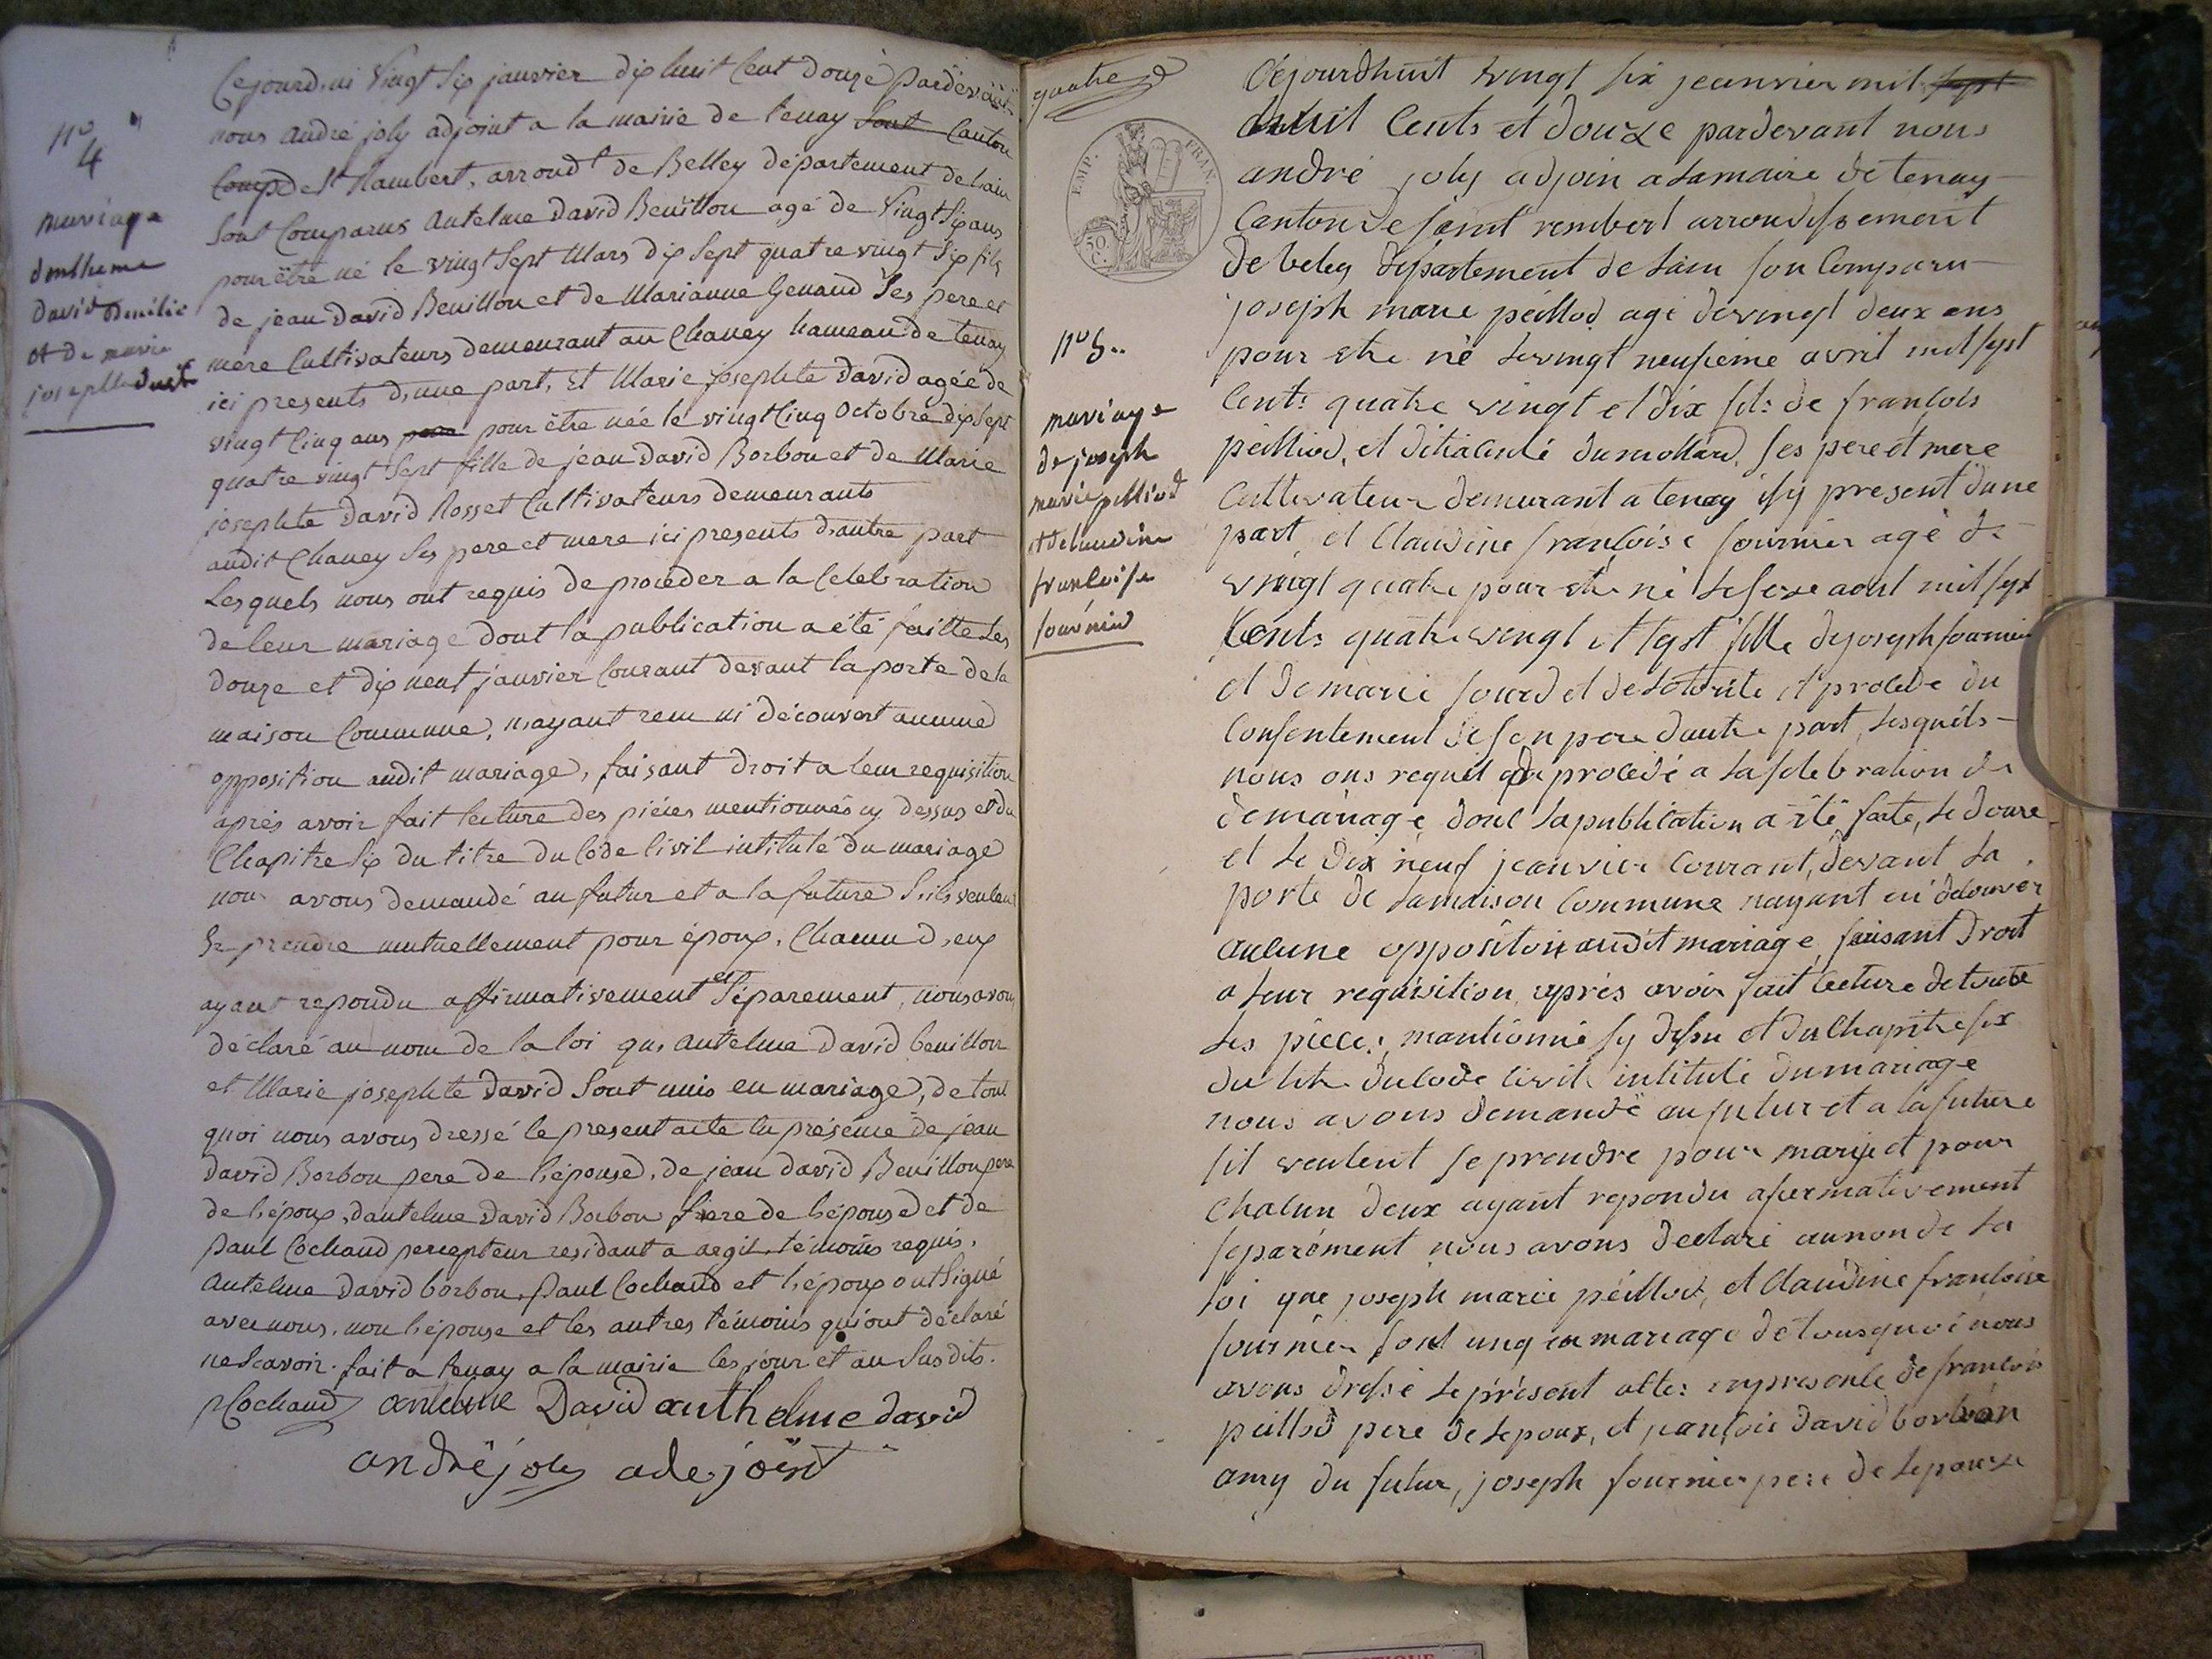 n° 4
mariage
danthelme
david Benilié
et de marie
josephte david
Cejourd.ui vingt six janvier dix huit Cent douze Pardevant
nous andré joly adjoint a la mairie de tenay sont Canton
Comp de St Rambert, arrond.t de Belley département de l.ain
sont Comparus antelme david Benillon agé de vingt six ans
pour être né le vingt sept Mars dix sept quatre vingt six fils
de jean david Benillon et de Marianne Genaud ses pere et
mere Cultivateurs demeurant au Chaney hameau de tenay
ici presents d'une part, Et Marie josephte david agée de
vingt Cinq ans pour être née le vingt Cinq Octobre dix sept
quatre vingt sept fille de jean david Borbon et de Marie
josephte david Rosset Cultivateurs demeurants
audit Chaney ses pere et mere ici presents d'autre part
Lesquels nous ont requis de procéder a la Celebration
de leur mariage dont la publication a été faitte les
douze et dix neuf janvier Courant devant la porte de la
maison Commune, n,ayant recu ni découvert aucune
opposition audit mariage, faisant droit a leur requisition
après avoir fait lecture des piéces mentionnés cy dessus et du
Chapitre six du titre du Code Civil intitulé du mariage
nous avons demandé au futur et a la future s,ils veulent
se prendre mutuellement pour époux, Chacun d,eux
ayant repondu affirmativement et séparement, nous avons
déclaré au nom de la loi que antelme david benillon
et Marie josephte david sont unis en mariage, de tout
quoi nous avons dressé le present acte En présence de jean
david Borbon pere de l,épouse, de jean david Benillon pere
de l,époux, d'antelme david Borbon frere de l,épouse et de
Paul Cochaud percepteur residant a argis, témoins requis.
antelme david borbon, Paul Cochaud et l,époux ont signé
avec nous, non l,épouse et les autres témoins qui ont déclaré
ne scavoir. fait a tenay a la mairie les jour et an susdits.
PCochaud antelme David anthelme david
andré joly adejoint
quatre
EMP. FRAN.
50 C.
n° 5..
mariage
de joseph
marie pelliod
et de claudine
francoise
fournier
Cejourdhuit vingt six jeanvier mil sept
huit Cents et douze pardevant nous
andré joly adjoin a lamaire de tenay
Canton de saint rembert arrondissement
de beley département de lain son Comparu
joseph marie peillod agé de vingt deux ans
pour etre né le vingt neufieme avril mil sept
Cents quatre vingt et dix fils de francois
peilliod, et détiacenté dumollard, ses pere et mere
Cultivateur demurant a tenay isy present dune
part, et Claudine francoise fournier agé de
vingt quatre pour etre né le seze aout mil sept
Cents quatre vingt et sept fille de joseph fournier
et de marie sourd et de lotorité et procede du
Consentement de son pere dautre part, lesquels
nous ons requit de procédé a la selebration de
de mariage, dont la publication a été faite, le douze
et le dix neuf jeanvier Courant, devant la
porte de lamaison Commune nayant ni découver
aucune oppositoin audit mariage, faisant droit
a leur requisition, après avoir fait lecture de toute
les pieces mantionné sy desu et du Chapitre six
du titre du Code Civil intitulé du mariage
nous avons demandé au futur et a la future
sil veulent se prendre pour marie et pour
Chacun deux ayant repondu afermativement
separément nous avons declaré aunon de la
loi que joseph marie peillod, et Claudine francoise
fournier sont uny en mariage de tousquoi nous
avons dressé le présent actes enpresence de francois
peillod pere de lepoux, et david borbon
amy du futur, joseph fournier pere de lepouse